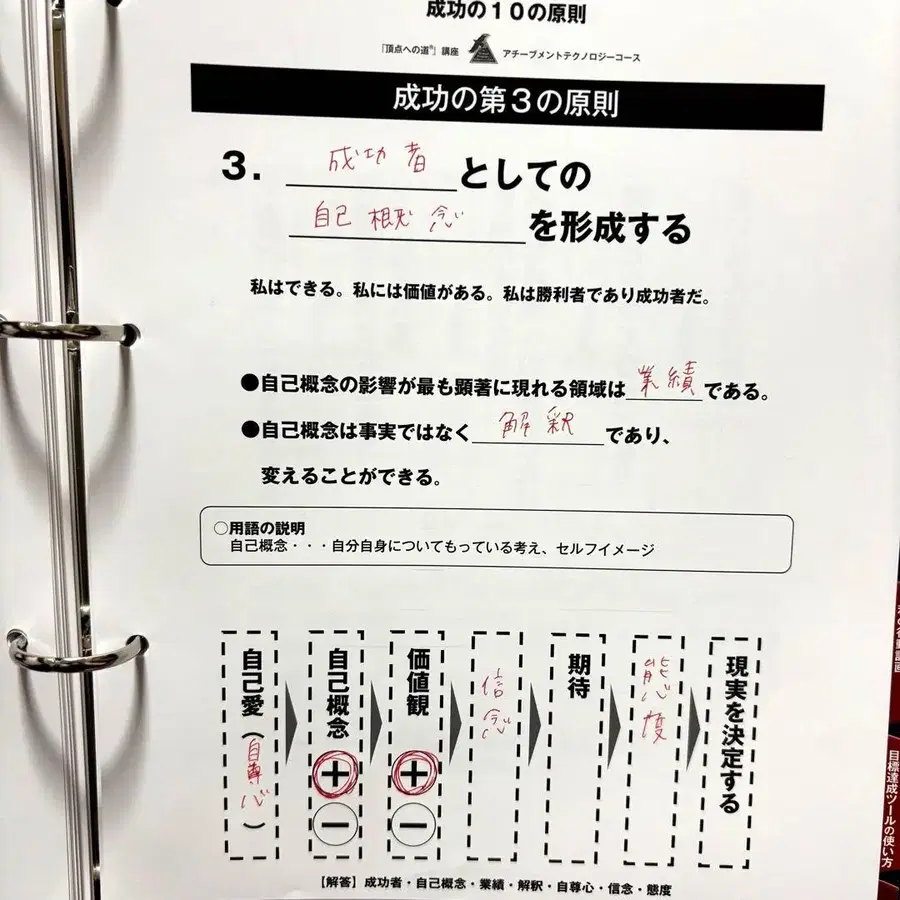 成功の10の原則
『頂点への道®』講座 アチーブメントテクノロジーコース
成功の第3の原則
3. 成功者としての
自己概念を形成する
私はできる。私には価値がある。私は勝利者であり成功者だ。
●自己概念の影響が最も顕著に現れる領域は業績である。
●自己概念は事実ではなく解釈であり、
変えることができる。
○用語の説明
自己概念・・・自分自身についてもっている考え、セルフイメージ
自己愛(自尊心)
自己概念 + −
価値観 + −
信念
期待
態度
現実を決定する
【解答】成功者・自己概念・業績・解釈・自尊心・信念・態度
目標達成ツールの使い方